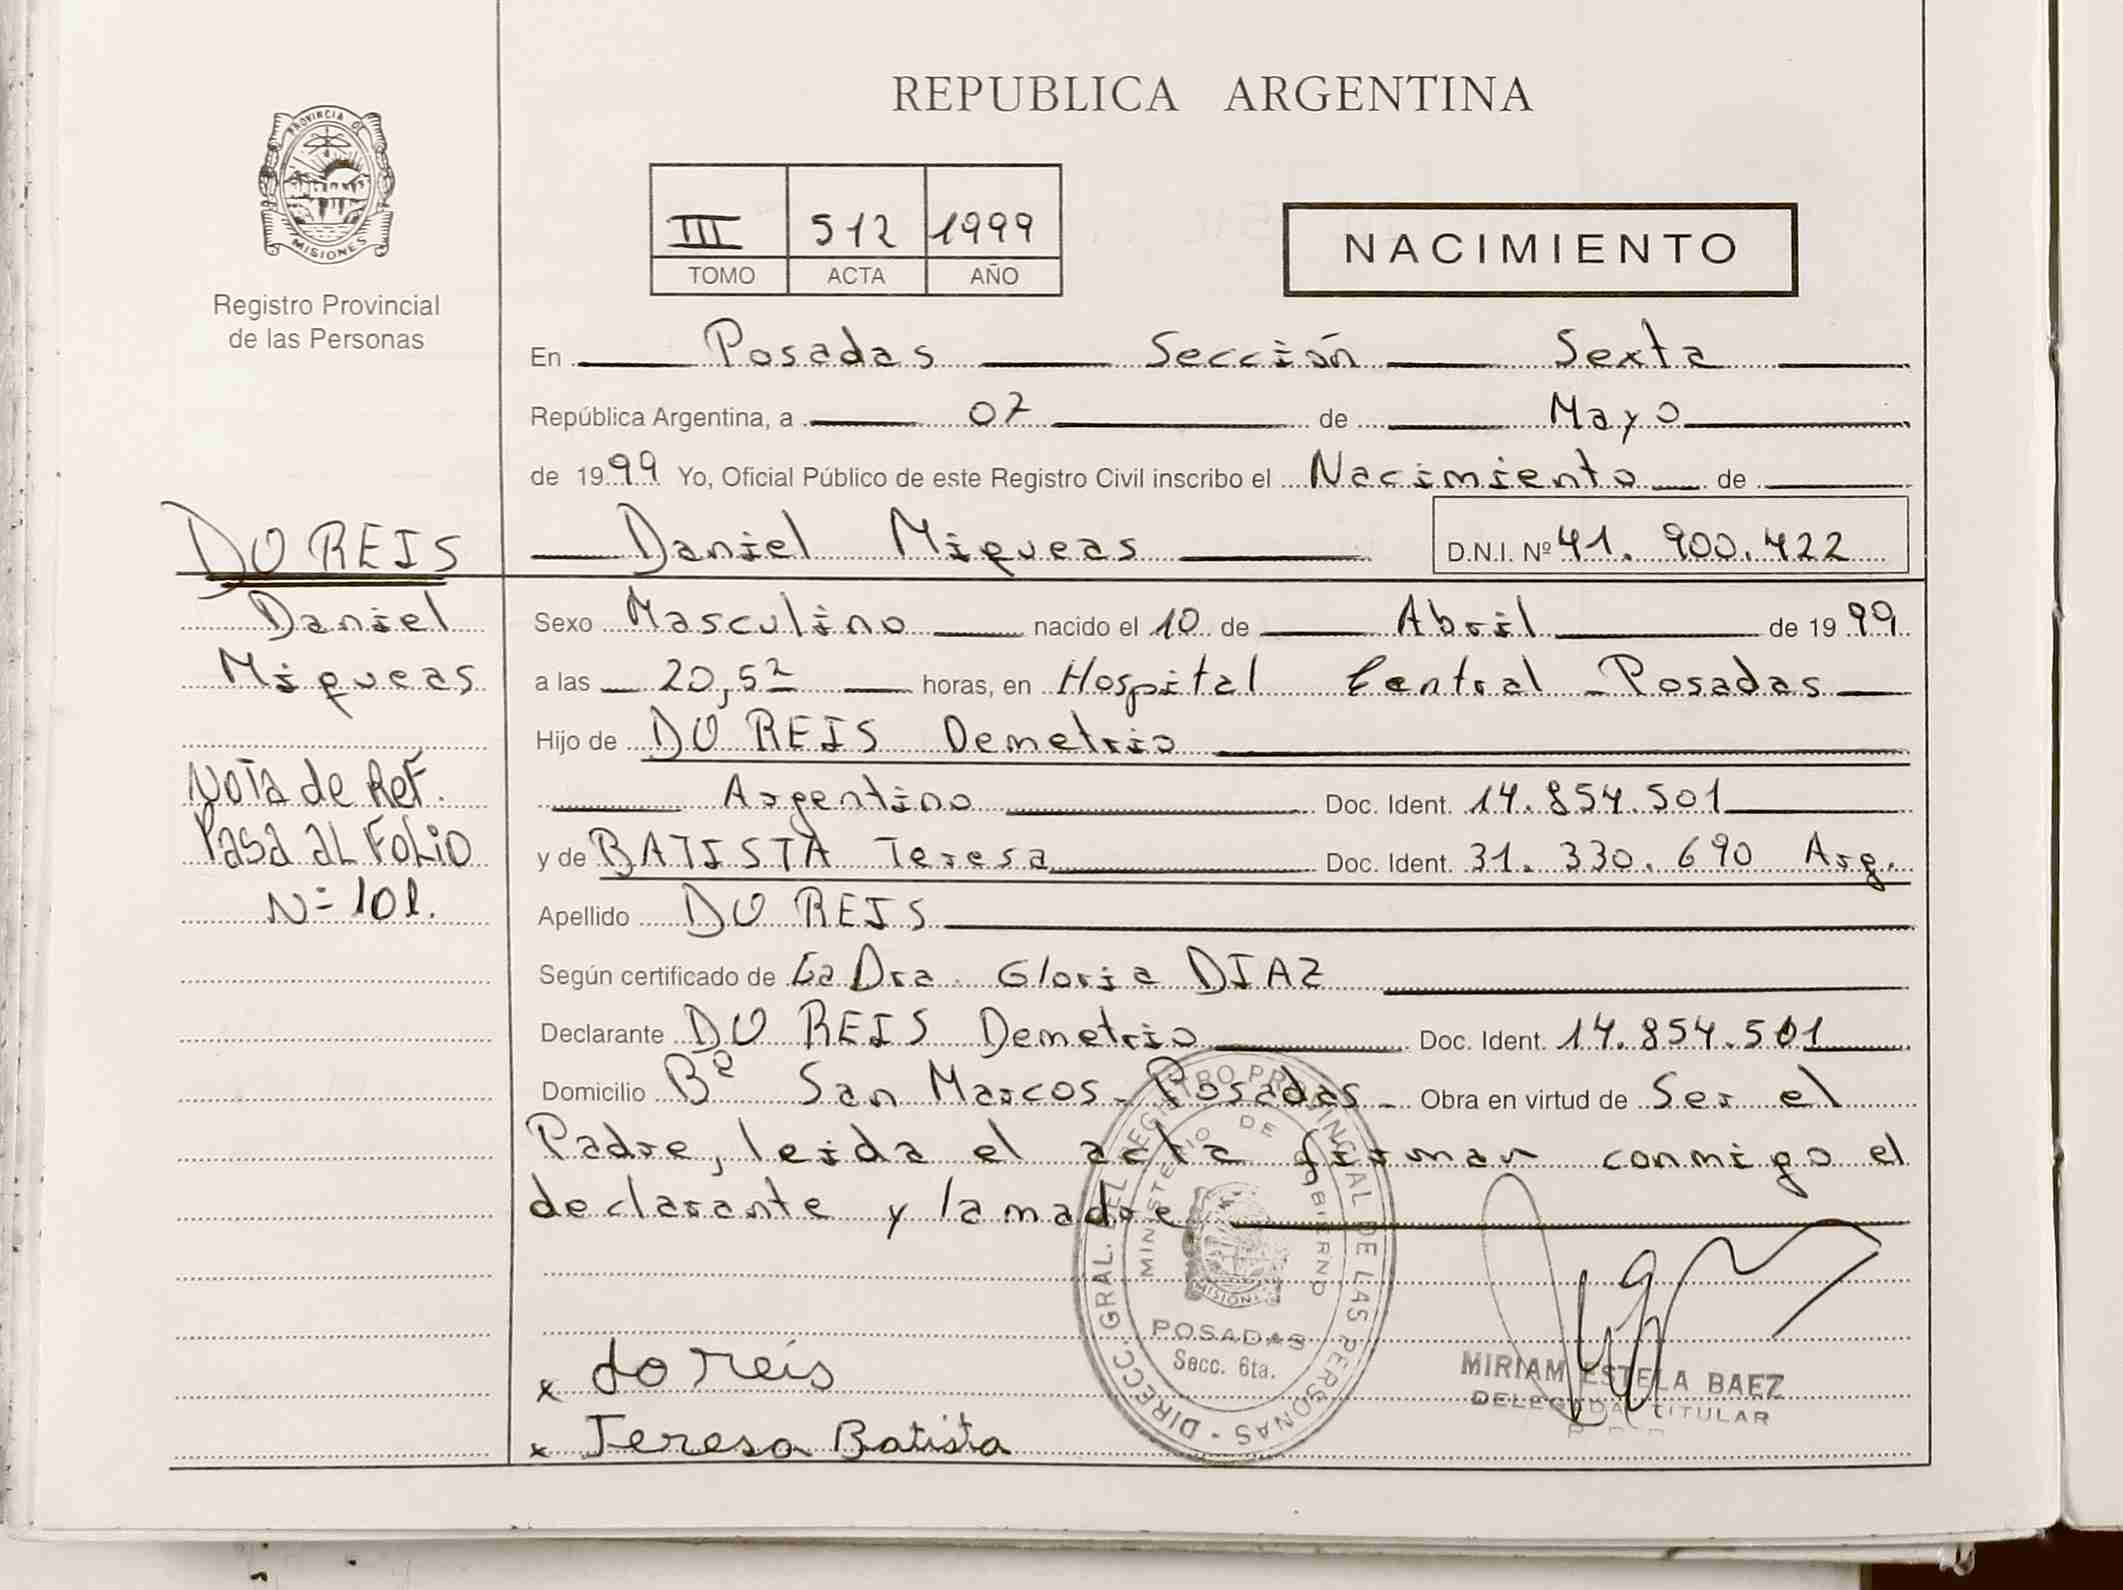 REPUBLICA ARGENTINA
PROVINCIA DE
MISIONES
Registro Provincial
de las Personas
III 512 1999
TOMO ACTA AÑO
NACIMIENTO
En Posadas Sección Sexta
República Argentina, a 07 de Mayo
de 1999 Yo, Oficial Público de este Registro Civil inscribo el Nacimiento de
Daniel Miqueas D.N.I. Nº 41.900.422
DO REIS
Daniel
Miqueas
Nota de Ref.
Pasa al Folio
N= 101.
Sexo Masculino nacido el 10 de Abril de 1999
a las 20,52 horas, en Hospital Central - Posadas
Hijo de DO REIS Demetrio
Argentino Doc. Ident. 14.854.501
y de BATISTA Teresa Doc. Ident. 31.330.690 Arg.
Apellido DO REIS
Según certificado de La Dra. Gloria DIAZ
Declarante DO REIS Demetrio Doc. Ident. 14.854.501
Domicilio Bº San Marcos - Posadas - Obra en virtud de Ser el
Padre, leida el acta firman conmigo el
declarante y la madre
DIRECC. GRAL. DEL REGISTRO PROVINCIAL DE LAS PERSONAS -
MINISTERIO DE GOBIERNO
MISIONES
POSADAS
Secc. 6ta.
x do reis
x Teresa Batista
MIRIAM ESTELA BAEZ
DELEGADA TITULAR